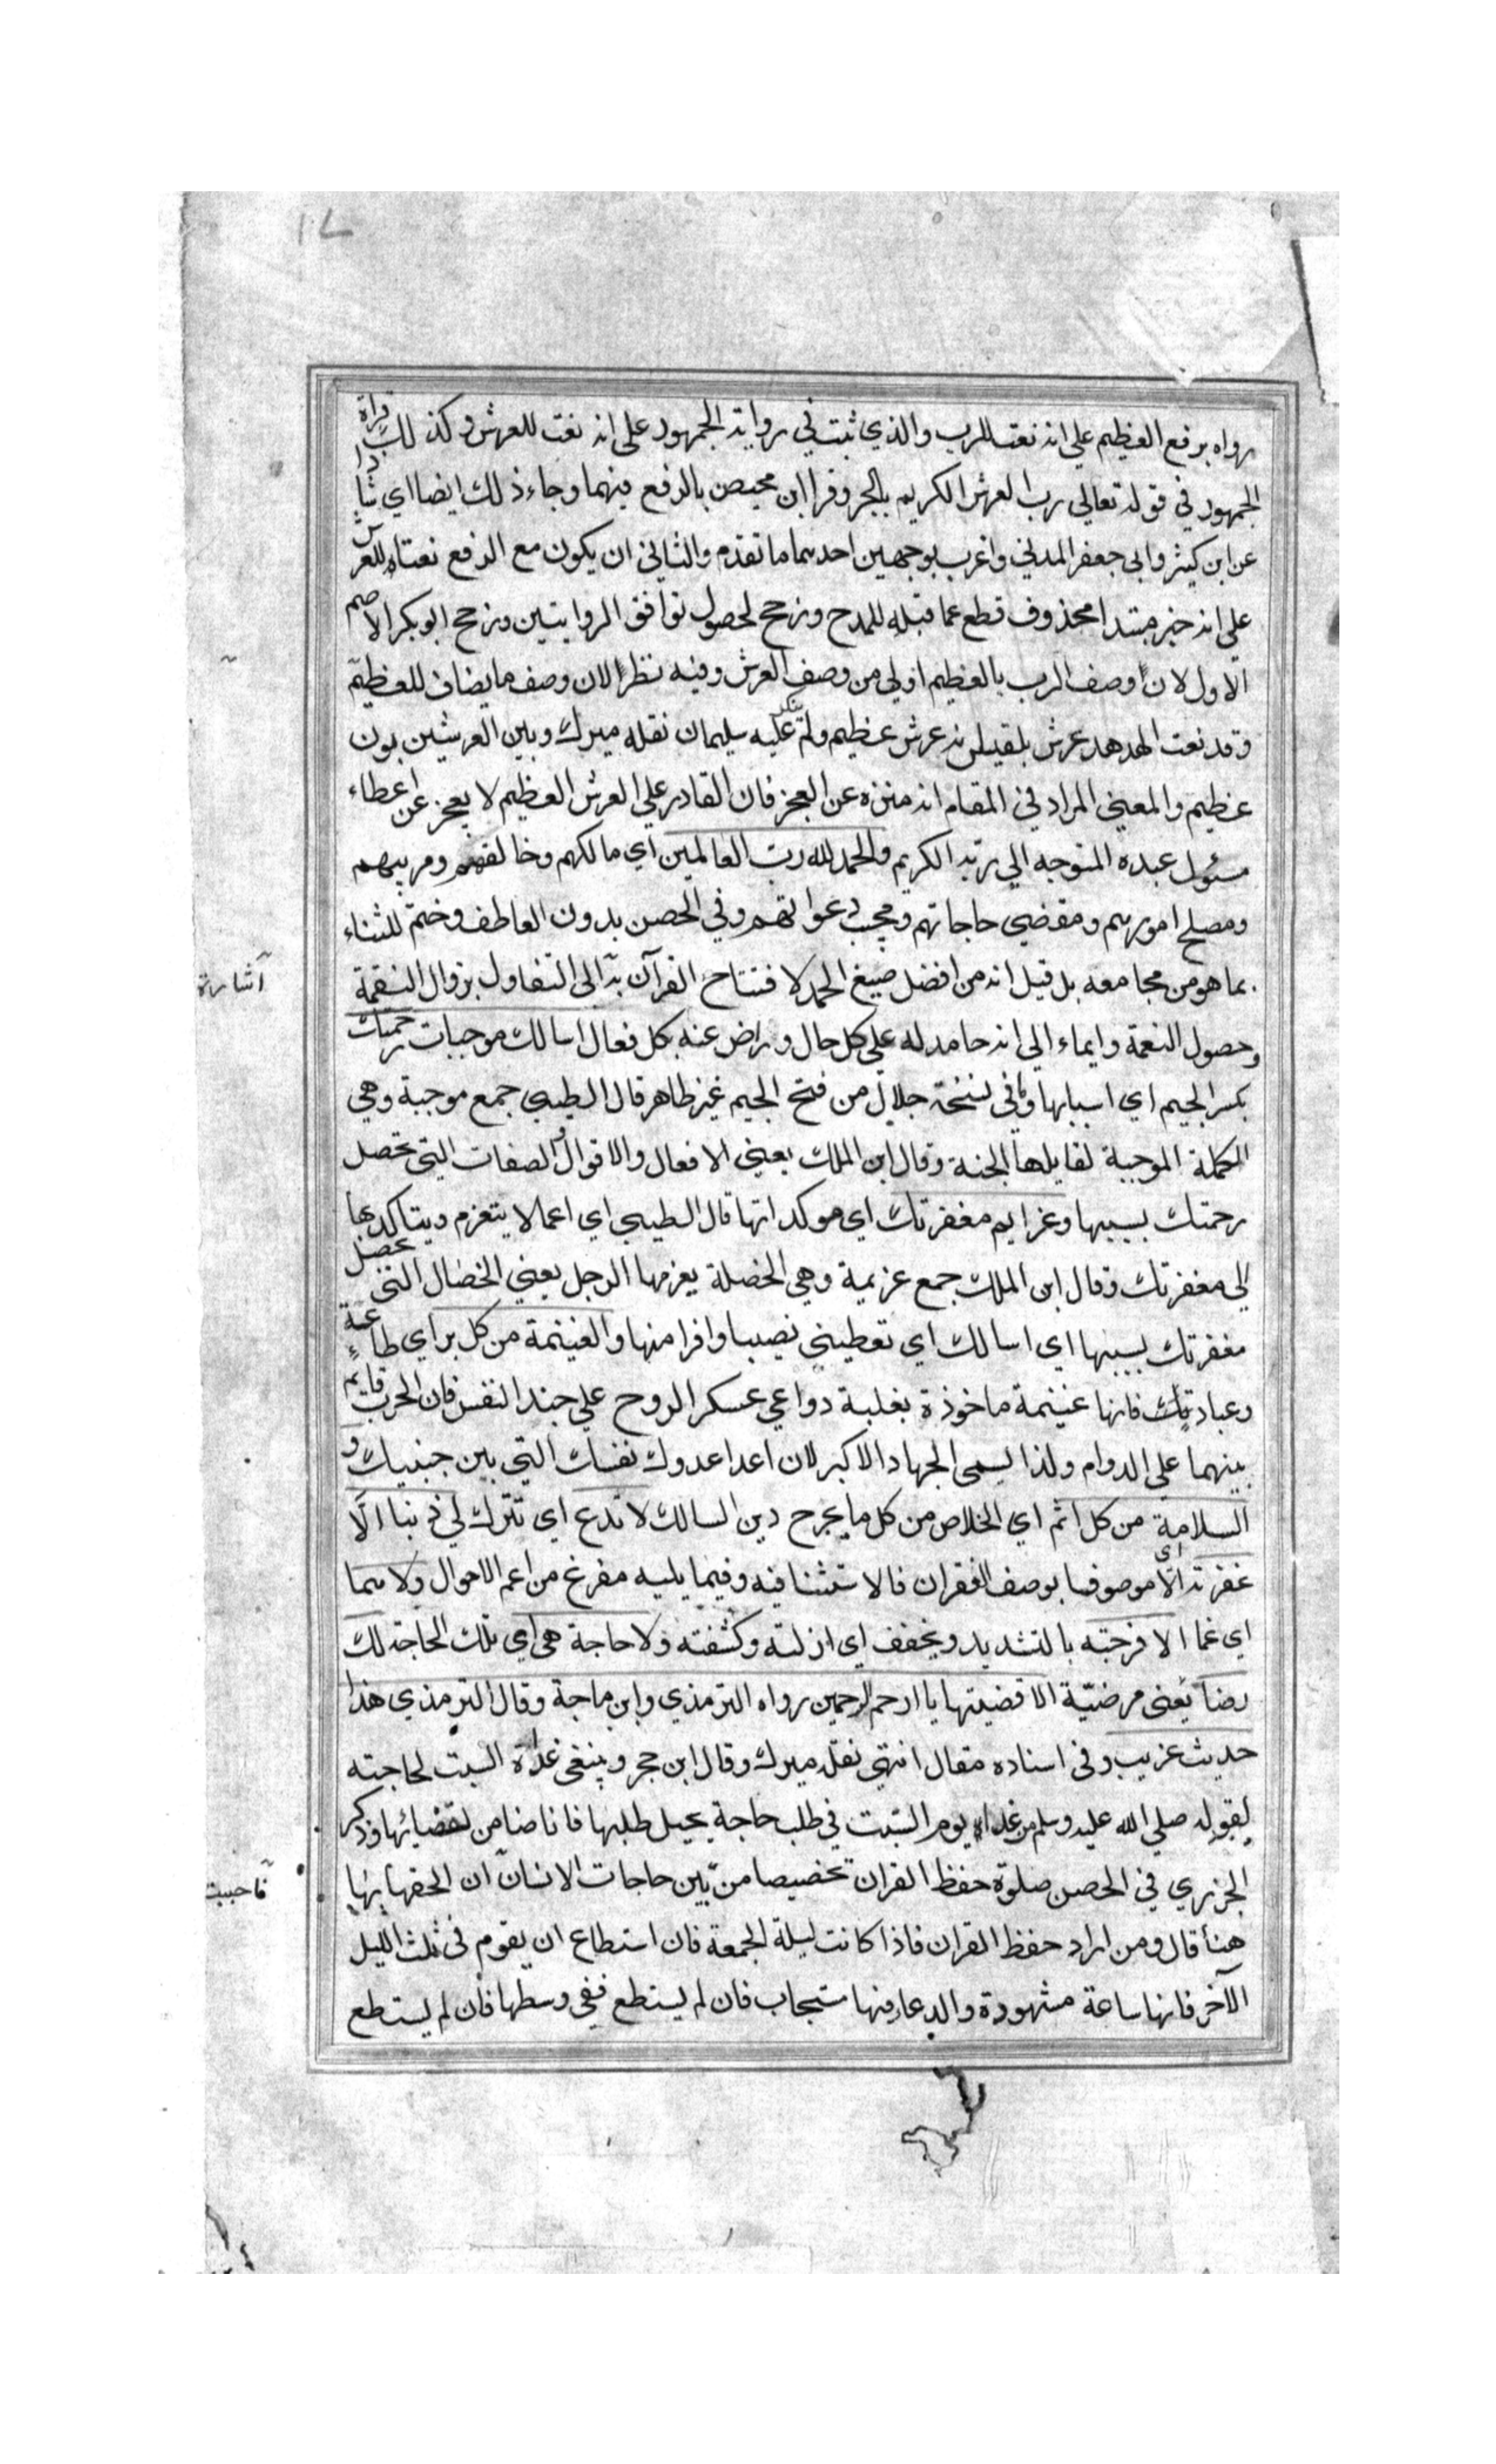 ١٢
رواه برفع العظيم على انه نعت للرب والذي ثبت في رواية الجمهور على انه نعت للعرش وكذلك قراءة
الجمهور في قوله تعالى رب العرش الكريم بالجر وقرا ابن محيصن بالرفع فيهما وجاء ذلك ايضا اي شاذا
عن ابن كثير وابي جعفر المدني واعرب بوجهين احدهما ما تقدم والثاني ان يكون مع الرفع نعتا للعرش
على انه خبر مبتدا محذوف قطع عما قبله للمدح ورجح لحصول توافق الروايتين ورجح ابو بكر الاصم
الاول لان وصف الرب بالعظيم اولى من وصف العرش وفيه نظر لان وصف ما يضاف للعظيم
وقد نعت الهدهد عرش بلقيس بانه عرش عظيم ولم ينكر عليه سليمان نقله ميرك وبين العرشين بون
عظيم والمعنى المراد في المقام انه منزه عن العجز فان القادر على العرش العظيم لا يعجز عن اعطاء
مسئول عبده المتوجه الى ربه الكريم والحمد لله رب العالمين اي مالكهم وخالقهم ومربيهم
ومصلح امورهم ومقضي حاجاتهم ومجيب دعواتهم وفي الحصن بدون العاطف وختم للثناء
بما هو من مجامعه بل قيل انه من افضل صيغ الحمد لافتتاح القرآن به الى التفاول بزوال النقمة
اشارة
وحصول النعمة وايماء الى انه حامد له على كل حال وراض عنه بكل فعال اسالك موجبات رحمتك
بكسر الجيم اي اسبابها وما في نسخة جلال من فتح الجيم غير ظاهر قال الطيبي جمع موجبة وهي
الكلمة الموجبة لقايلها الجنة وقال ابن الملك يعني الافعال والاقوال والصفات التي تحصل
رحمتك بسببها وعزايم مغفرتك اي موكداتها قال الطيبي اي اعمالا يتعزم ويتاكد بها
لي مغفرتك وقال ابن الملك جمع عزيمة وهي الخصلة يعزمها الرجل يعني الخصال التي تحصل
مغفرتك بسببها اي اسالك اي تعطيني نصيبا وافرا منها والغنيمة من كل بر اي طاعة
وعبادتك فانها غنيمة ماخوذة بغلبة دواعي عسكر الروح على جند النفس فان الحرب قايم
بينهما على الدوام ولذا يسمى الجهاد الاكبر لان اعدا عدوك نفسك التي بين جنبيك و
السلامة من كل اثم اي الخلاص من كل ما يجرح دين السالك لا تدع اي تترك لي ذنبا الا
غفرته اي الا موصوفا بوصف الغفران فالاستثنا فيه وفيما يليه مفرغ من اعم الاحوال ولا هما
اي غما الا فرجته بالتشديد ويخفف اي ازلته وكشفته ولا حاجة هي اي تلك الحاجة لك
رضا يعنى مرضية الا قضيتها يا ارحم الرحمين رواه الترمذي وابن ماجة وقال الترمذي هذا
حديث غريب وفي اسناده مقال انتهى نقله ميرك وقال ابن حجر وينبغي غداة السبت لحاجته
لقوله صلى الله عليه وسلم من غداه يوم السبت في طلب حاجة يحل طلبها فانا ضامن لقضائها وذكر
الجزري في الحصن صلوة حفظ القران تخصيصا من بين حاجات الانسان ان الحقها بها
فاحببت
هنا قال ومن اراد حفظ القران فاذا كانت ليلة الجمعة فان استطاع ان يقوم في ثلث الليل
الآخر فانها ساعة مشهودة والدعاء فيها مستجاب فان لم يستطع ففي وسطها فان لم يستطع